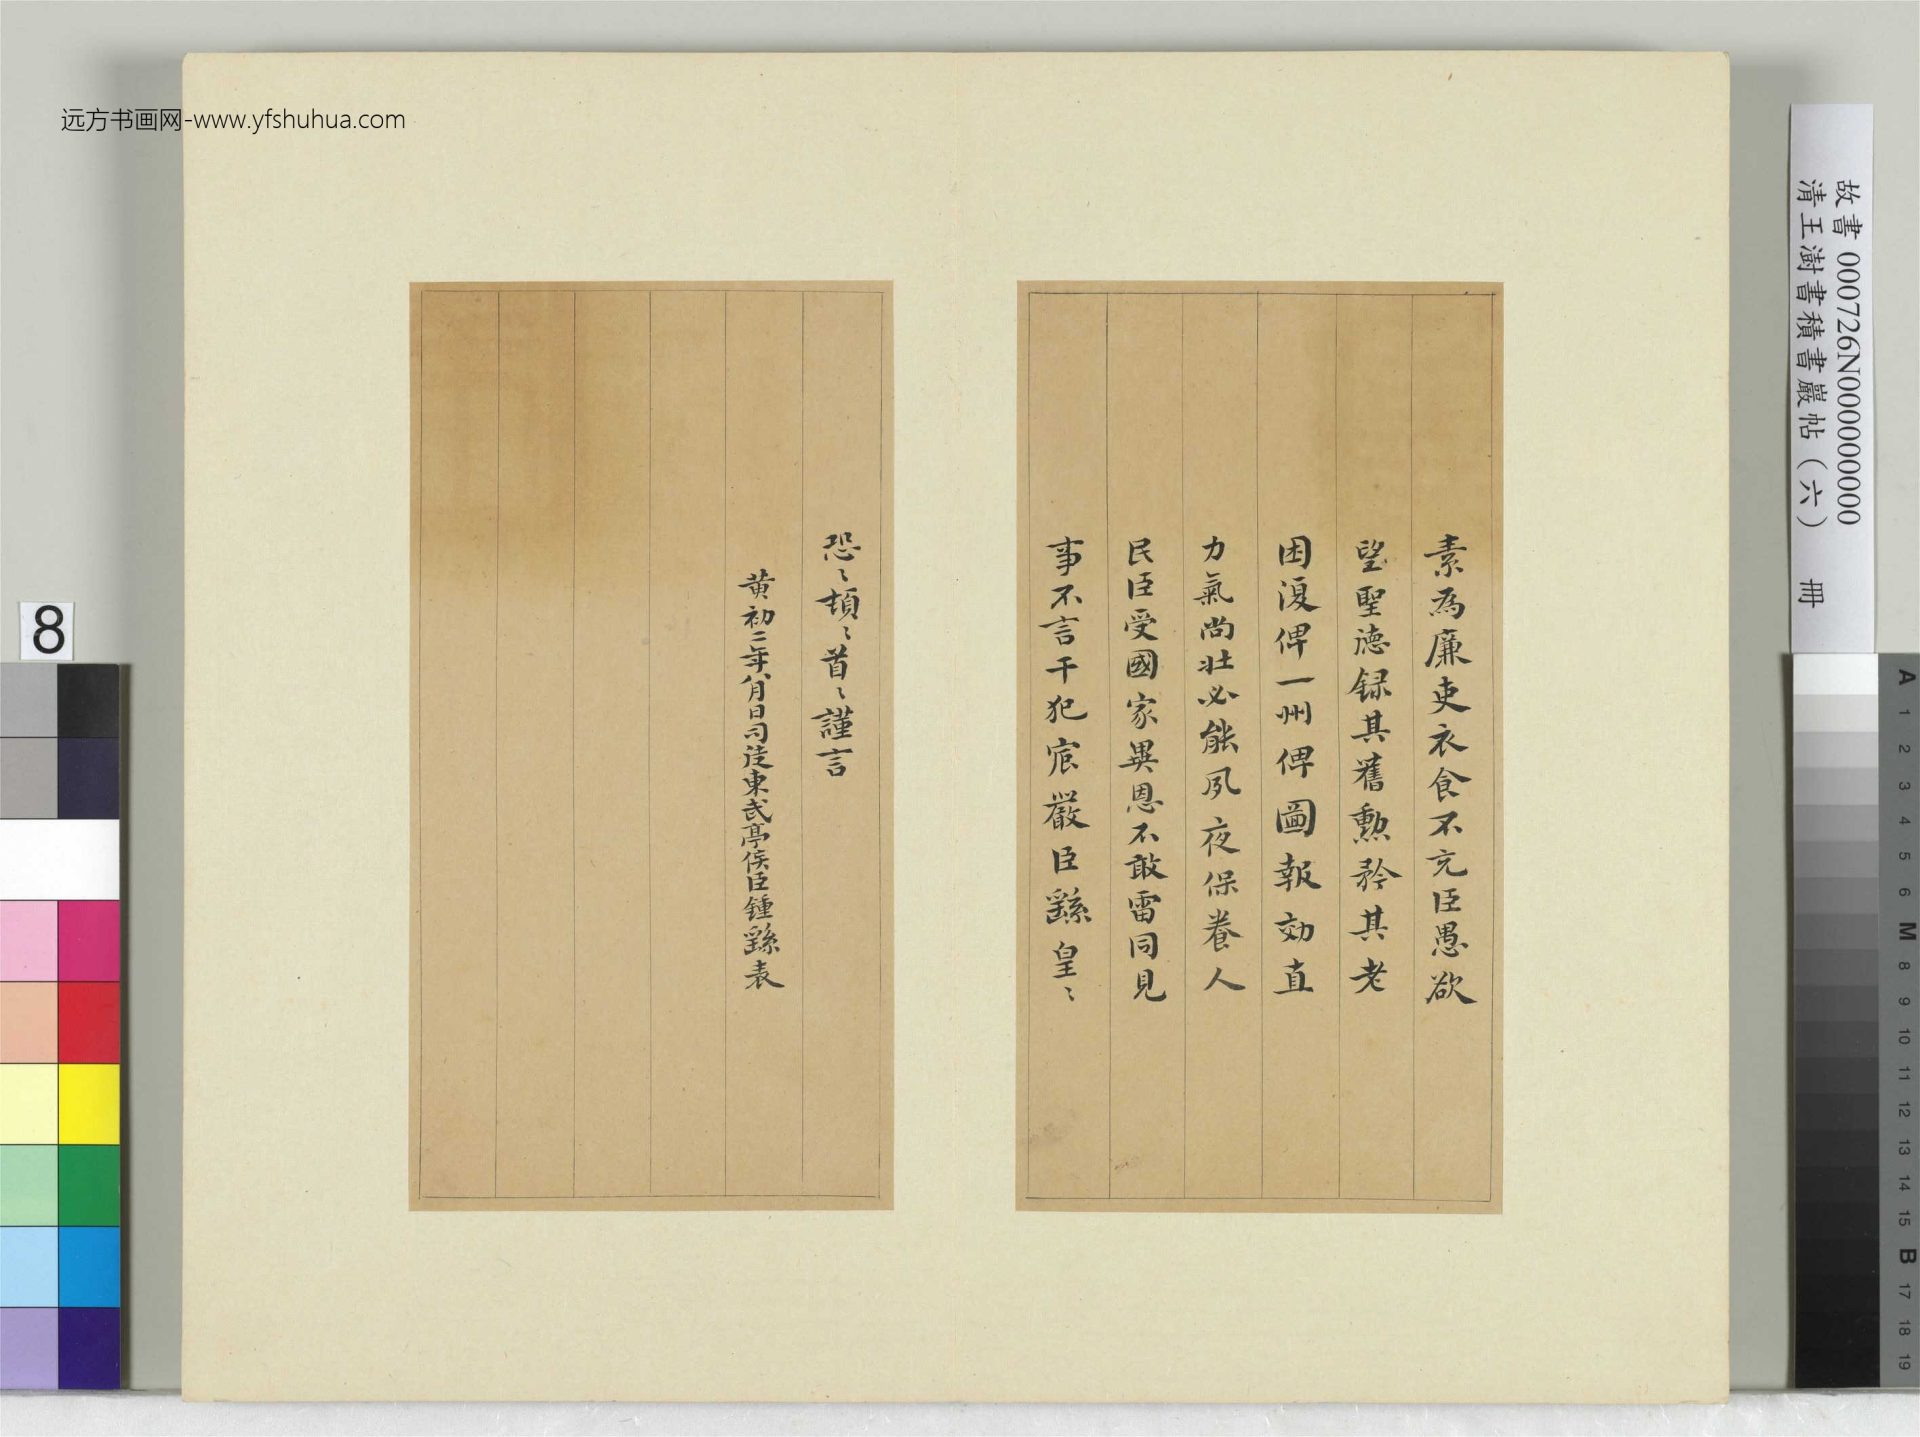 远方书画网-www.yfshuhua.com
故書 000726N000000000
清王澍書積書巖帖（六） 冊
素為廉吏衣食不充臣愚欲
望聖德錄其舊勳矜其老
困復俾一州俾圖報効直
力氣尚壯必能夙夜保養人
民臣受國家異恩不敢雷同見
事不言干犯宸嚴臣繇皇〻
恐〻頓〻首〻謹言
黃初二年八月日司徒東武亭侯臣鍾繇表
8
A
1
2
3
4
5
6
M
8
9
10
11
12
13
14
15
B
17
18
19